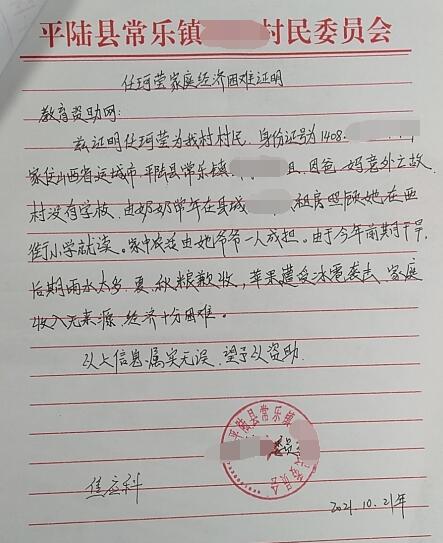 平陆县常乐镇 村民委员会
任珂莹家庭经济困难证明
教育资助网:
兹证明任珂莹为我村村民,身份证号为1408.
家住山西省运城市,平陆县常乐镇 因爸、妈意外亡故,
村没有学校,由奶奶常年在县城 租房照顾她在西
街小学就读。家中农活由她爷爷一人成担。由于今年前期干旱,
后期雨水太多,夏、秋粮歉收,苹果遭受冰雹袭击,家庭
收入无来源,经济十分困难。
以上信息,属实无误,望予以资助.
平陆县常乐镇
委员会
焦
科
2021.10.21年